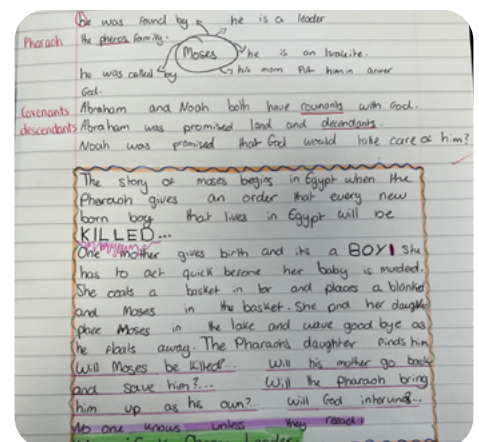 he was found by he is a leader
Pharaoh the pheros family.
Moses he is an Israelite.
he was called by his mom put him in a river
God.
Covenants Abraham and Noah both have covnants with God.
descendants Abraham was promised land and decendants.
Noah was promised that God would take care of him?
The story of moses begins in Egypt when the
Pharaoh gives an order that every new
born boy that lives in Egypt will be
KILLED...
One mother gives birth and its a BOY! She
has to act quick before her baby is murded.
She coats a basket in tar and places a blanket
and Moses in the basket. She and her daughter
place Moses in the lake and wave good bye as
he floats away. The Pharaohs daughter finds him
Will Moses be killed?... Will his mother go back
and save him?... Will the Pharaoh bring
him up as his own?... Will God intervine...
No one knows unless they read!